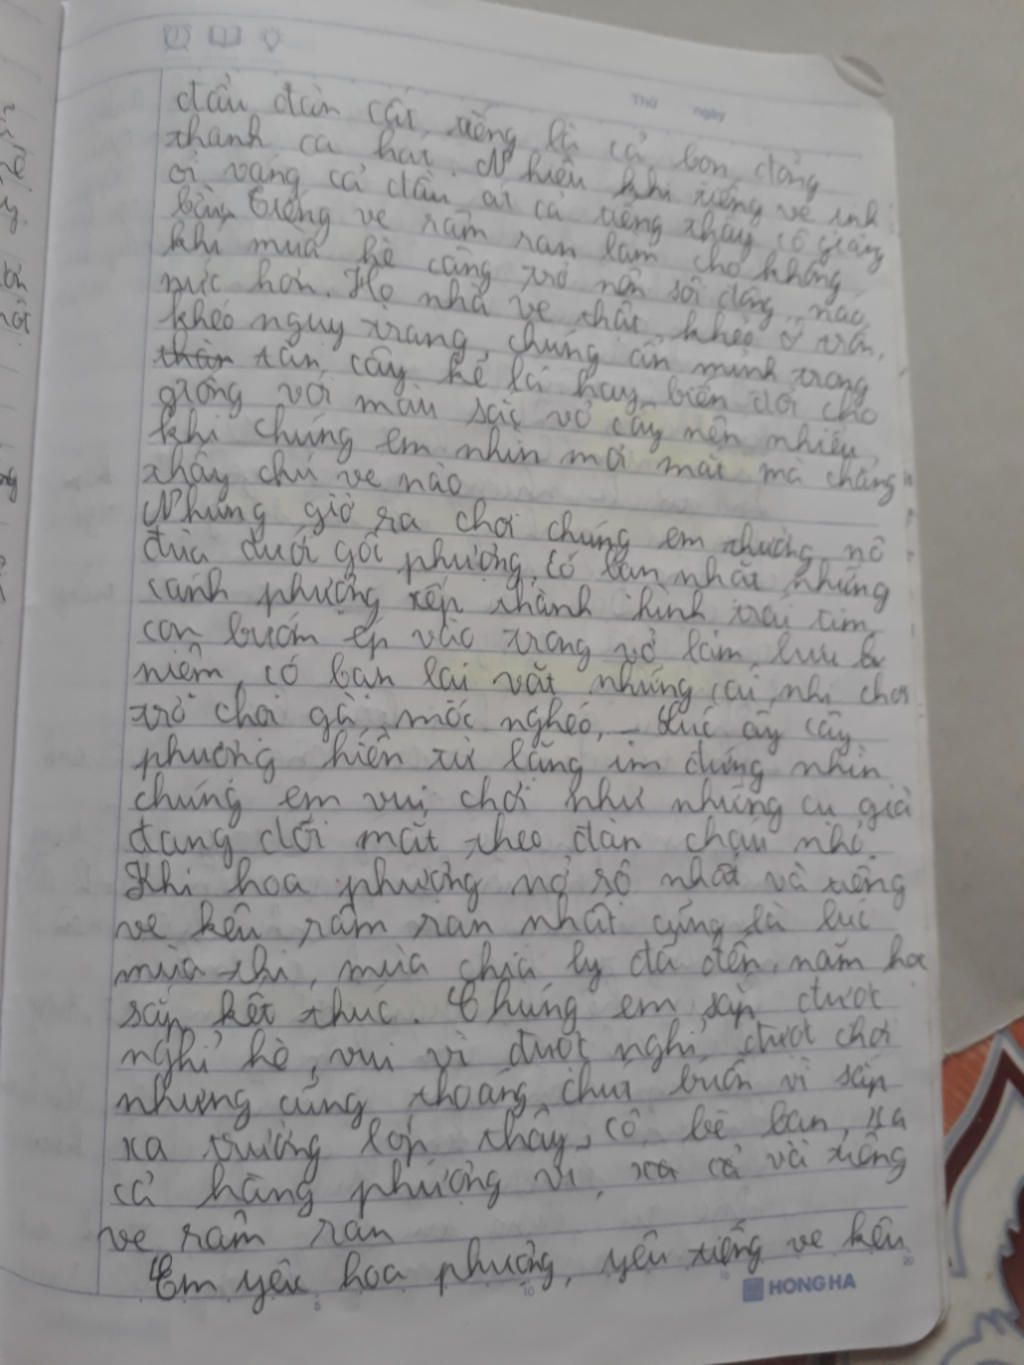 Thứ ngày
đầu đàn cất tiếng là cả bọn đồng
thanh ca hát. Nhiều khi tiếng ve inh
ỏi vang cả dần át cả tiếng thầy cô giảng
bài, tiếng ve râm ran làm cho không
khí mùa hè càng trở nên sôi động, náo
nức hơn. Họ nhà ve thật khéo ở trốn,
khéo nguỵ trang, chúng ẩn mình trong
tán cây kẽ lá hay biến đổi cho
giống với màu sắc vỏ cây nên nhiều
khi chúng em nhìn mỏi mắt mà chẳng
thấy chú ve nào
Những giờ ra chơi chúng em thường nô
đùa dưới gốc phượng, có bạn nhặt những
cánh phượng xếp thành hình trái tim
con bướm ép vào trong vở làm lưu
niệm, có bạn lại vặt những cái nhị chơi
trò chơi gà móc nghéo, Lúc ấy cây
phượng hiền từ lặng im đứng nhìn
chúng em vui chơi như những cụ già
đang dõi mắt theo đàn cháu nhỏ.
Khi hoa phượng nở rộ nhất và tiếng
ve kêu râm ran nhất cũng là lúc
mùa thi, mùa chia ly đã đến, năm học
sắp kết thúc. Chúng em sắp được
nghỉ hè, vui vì được nghỉ, được chơi
nhưng cũng thoáng chút buồn vì sắp
xa trường lớp thầy, cô bè bạn, xa
cả hàng phượng vĩ, xa cả và tiếng
ve râm ran
Em yêu hoa phượng, yêu tiếng ve kêu
5 10 15 20
HONG HA